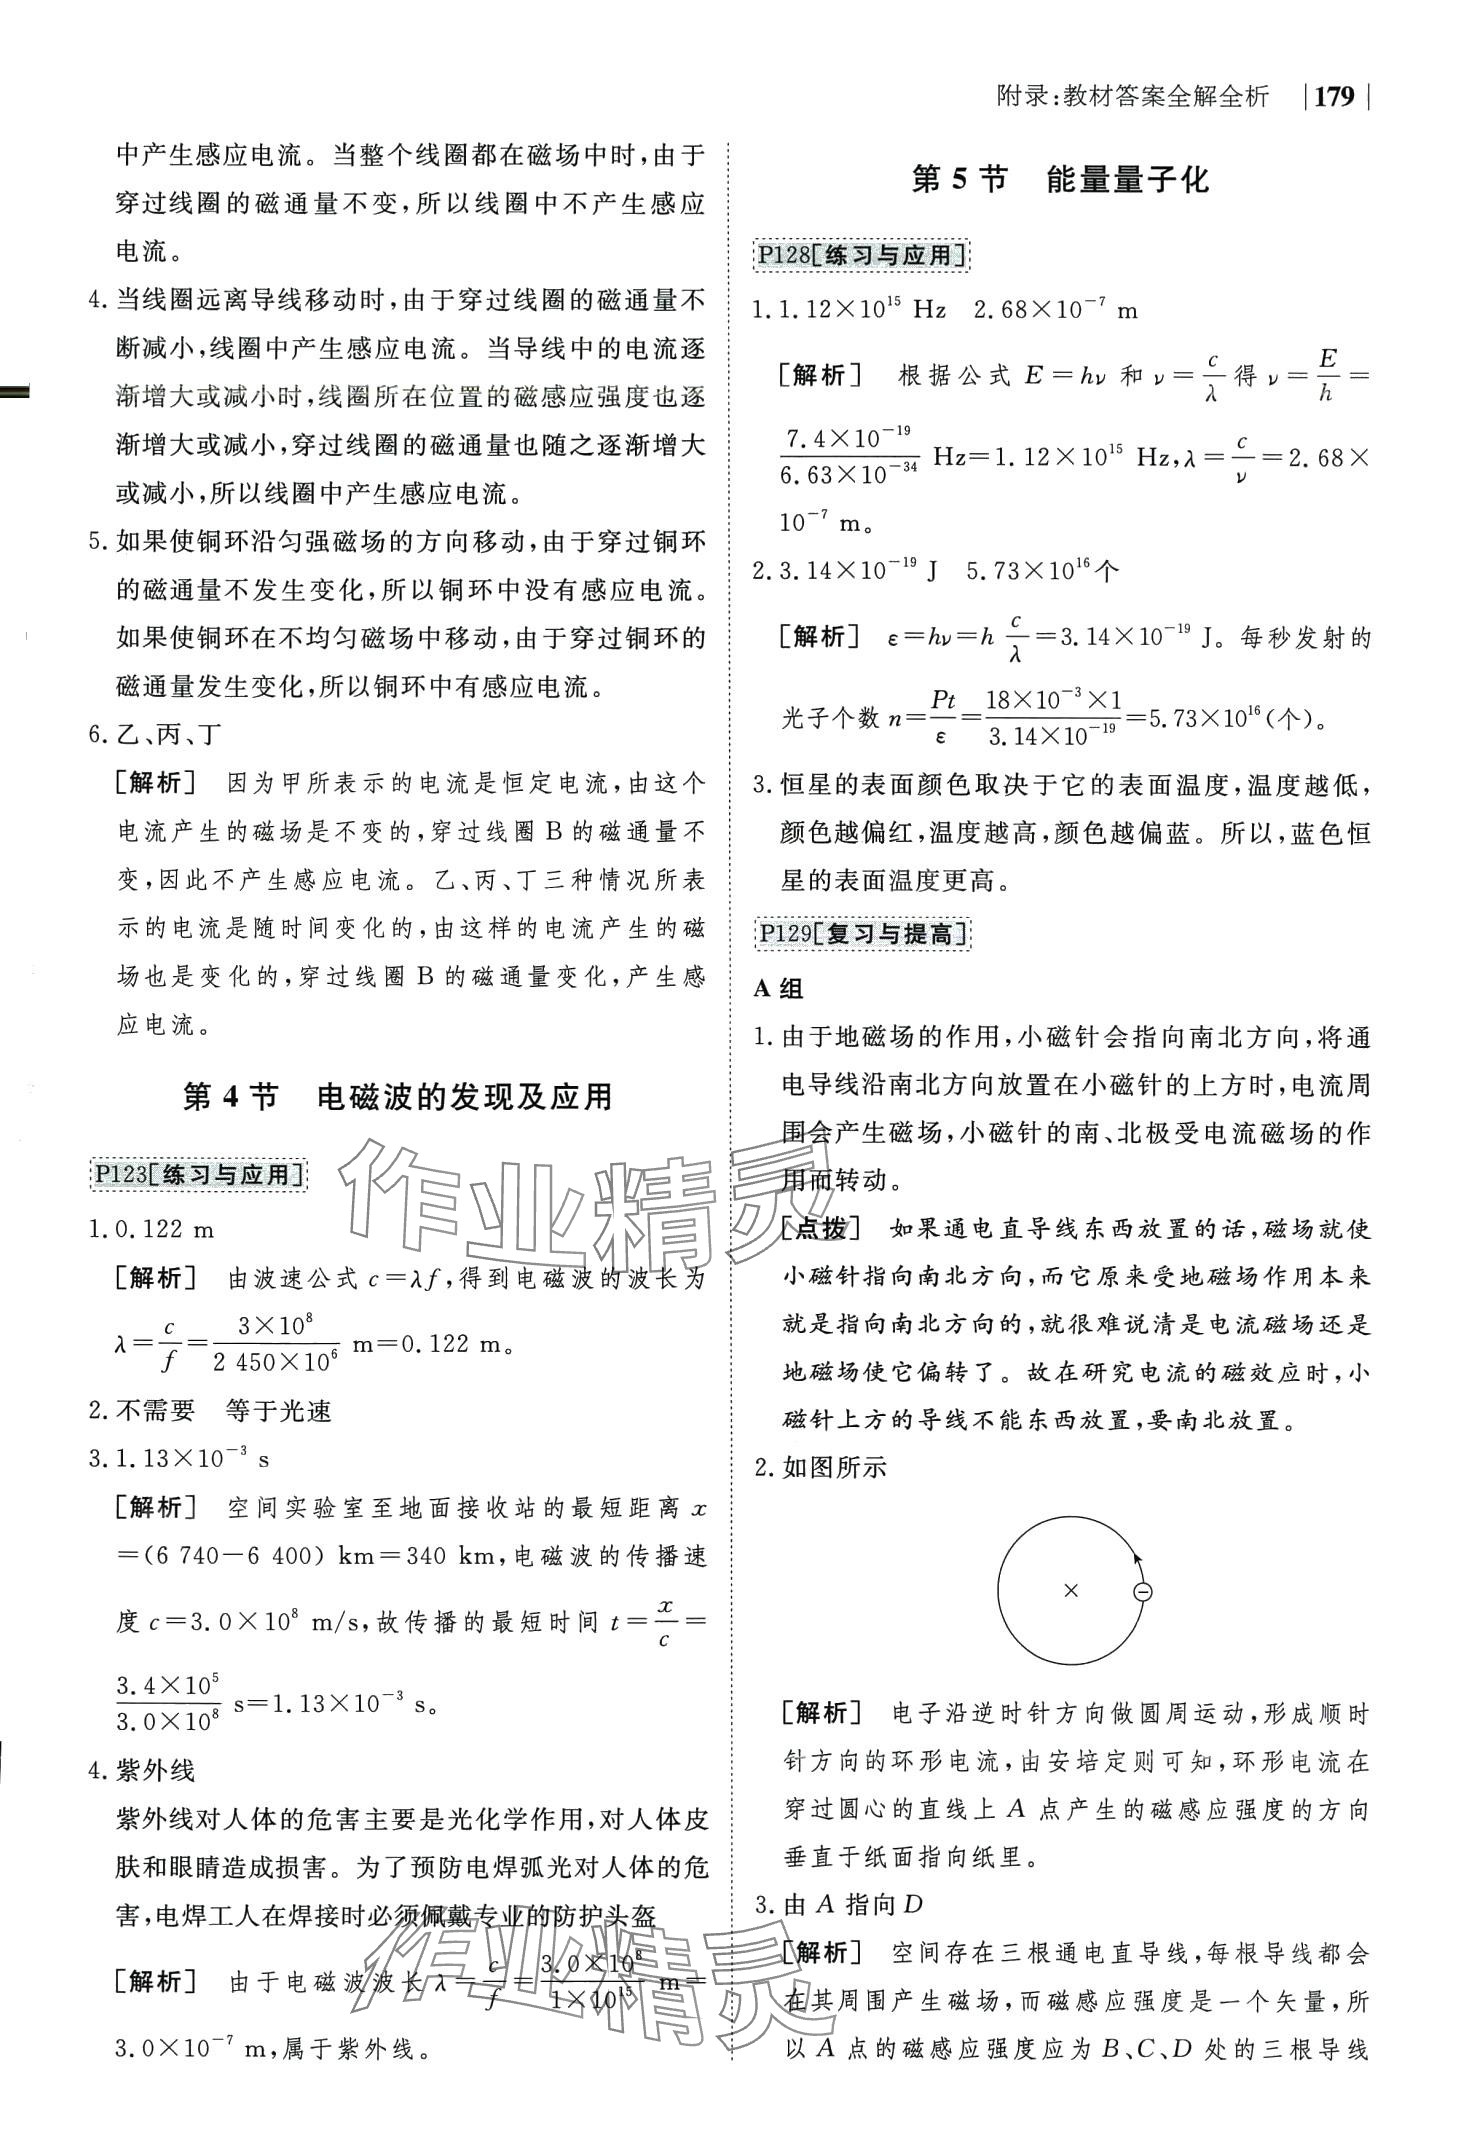 附录:教材答案全解全析 |179|
中产生感应电流。当整个线圈都在磁场中时,由于
穿过线圈的磁通量不变,所以线圈中不产生感应
电流。
4. 当线圈远离导线移动时,由于穿过线圈的磁通量不
断减小,线圈中产生感应电流。当导线中的电流逐
渐增大或减小时,线圈所在位置的磁感应强度也逐
渐增大或减小,穿过线圈的磁通量也随之逐渐增大
或减小,所以线圈中产生感应电流。
5. 如果使铜环沿匀强磁场的方向移动,由于穿过铜环
的磁通量不发生变化,所以铜环中没有感应电流。
如果使铜环在不均匀磁场中移动,由于穿过铜环的
磁通量发生变化,所以铜环中有感应电流。
6. 乙、丙、丁
[解析] 因为甲所表示的电流是恒定电流,由这个
电流产生的磁场是不变的,穿过线圈 B 的磁通量不
变,因此不产生感应电流。乙、丙、丁三种情况所表
示的电流是随时间变化的,由这样的电流产生的磁
场也是变化的,穿过线圈 B 的磁通量变化,产生感
应电流。
第 4 节 电磁波的发现及应用
P123[练习与应用]
1. 0.122 m
[解析] 由波速公式 c=λf,得到电磁波的波长为
λ=c/f=3×10⁸/2 450×10⁶ m=0.122 m。
2. 不需要 等于光速
3. 1.13×10⁻³ s
[解析] 空间实验室至地面接收站的最短距离 x
=(6 740-6 400) km=340 km,电磁波的传播速
度 c=3.0×10⁸ m/s,故传播的最短时间 t=x/c=
3.4×10⁵/3.0×10⁸ s=1.13×10⁻³ s。
4. 紫外线
紫外线对人体的危害主要是光化学作用,对人体皮
肤和眼睛造成损害。为了预防电焊弧光对人体的危
害,电焊工人在焊接时必须佩戴专业的防护头盔
[解析] 由于电磁波波长 λ=c/f=3.0×10⁸/1×10¹⁵ m=
3.0×10⁻⁷ m,属于紫外线。
第 5 节 能量量子化
P128[练习与应用]
1. 1.12×10¹⁵ Hz 2.68×10⁻⁷ m
[解析] 根据公式 E=hν 和 ν=c/λ 得 ν=E/h=
7.4×10⁻¹⁹/6.63×10⁻³⁴ Hz=1.12×10¹⁵ Hz,λ=c/ν=2.68×
10⁻⁷ m。
2. 3.14×10⁻¹⁹ J 5.73×10¹⁶个
[解析] ε=hν=h c/λ=3.14×10⁻¹⁹ J。每秒发射的
光子个数 n=Pt/ε=18×10⁻³×1/3.14×10⁻¹⁹=5.73×10¹⁶(个)。
3. 恒星的表面颜色取决于它的表面温度,温度越低,
颜色越偏红,温度越高,颜色越偏蓝。所以,蓝色恒
星的表面温度更高。
P129[复习与提高]
A 组
1. 由于地磁场的作用,小磁针会指向南北方向,将通
电导线沿南北方向放置在小磁针的上方时,电流周
围会产生磁场,小磁针的南、北极受电流磁场的作
用而转动。
[点拨] 如果通电直导线东西放置的话,磁场就使
小磁针指向南北方向,而它原来受地磁场作用本来
就是指向南北方向的,就很难说清是电流磁场还是
地磁场使它偏转了。故在研究电流的磁效应时,小
磁针上方的导线不能东西放置,要南北放置。
2. 如图所示
× −
[解析] 电子沿逆时针方向做圆周运动,形成顺时
针方向的环形电流,由安培定则可知,环形电流在
穿过圆心的直线上 A 点产生的磁感应强度的方向
垂直于纸面指向纸里。
3. 由 A 指向 D
[解析] 空间存在三根通电直导线,每根导线都会
在其周围产生磁场,而磁感应强度是一个矢量,所
以 A 点的磁感应强度应为 B、C、D 处的三根导线
作业精灵
作业精灵